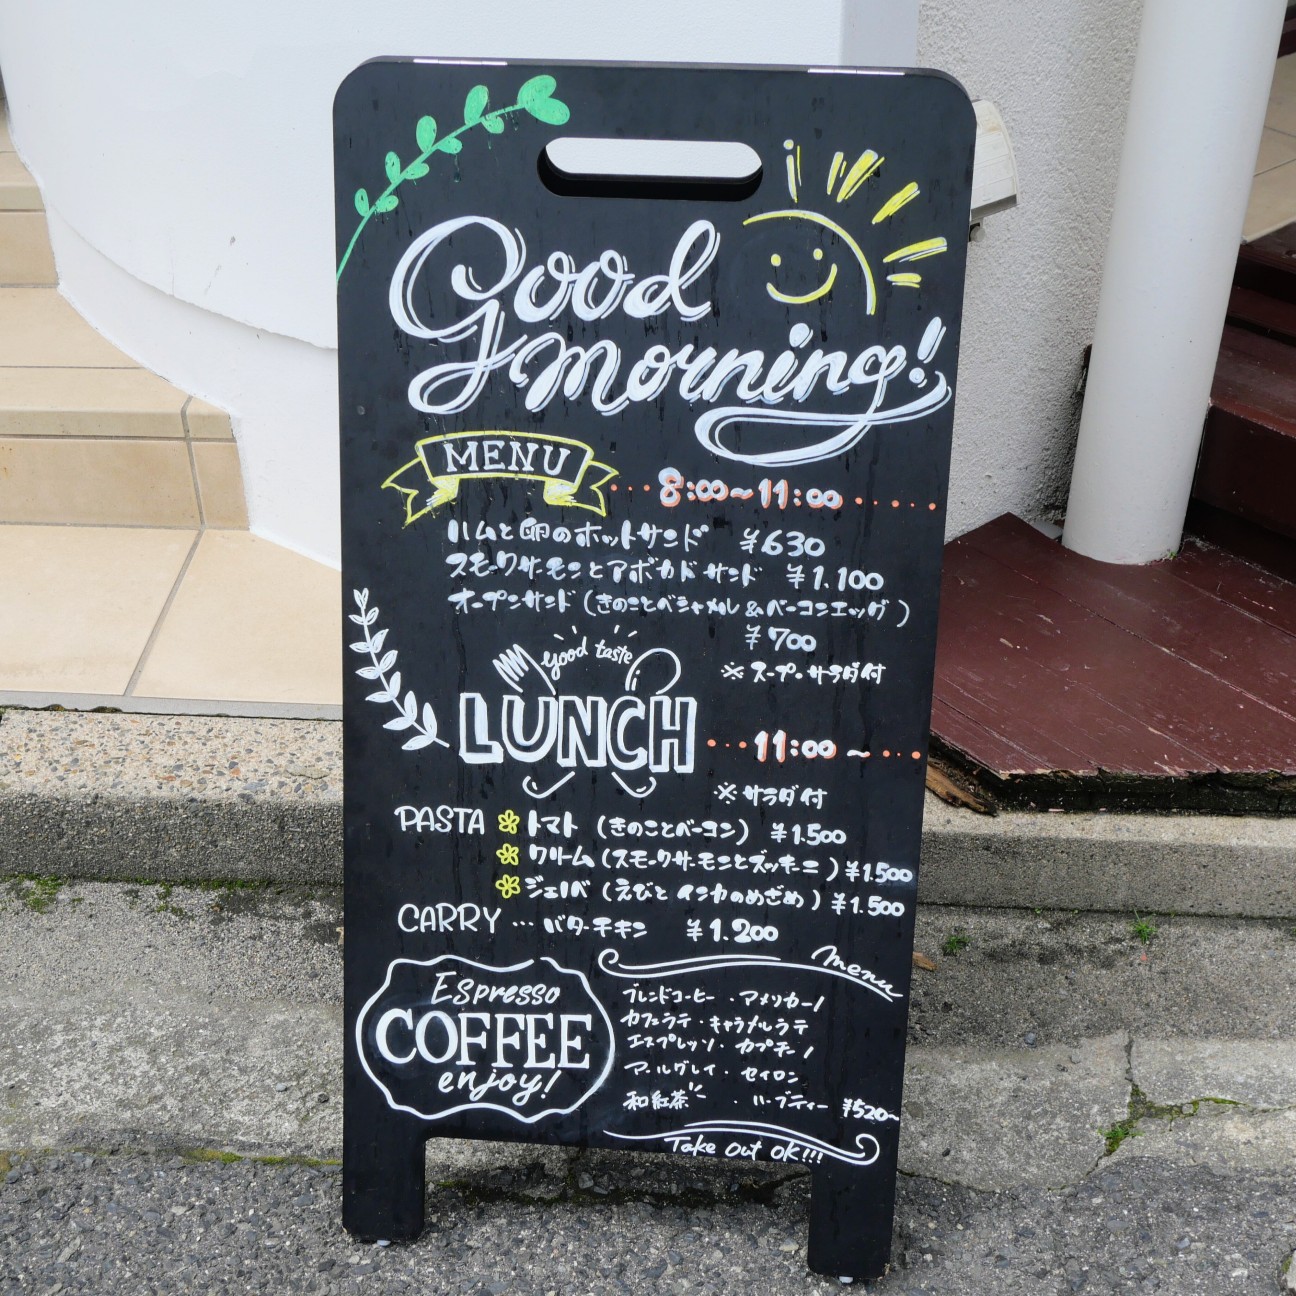 Good
Morning!
MENU
8:00〜11:00
ハムと卵のホットサンド ¥630
スモークサーモンとアボカドサンド ¥1.100
オープンサンド(きのことベシャメル&ベーコンエッグ)
¥700
※スープ・サラダ付
good taste
LUNCH
11:00〜
※サラダ付
PASTA トマト (きのことベーコン) ¥1.500
クリーム(スモークサーモンとズッキーニ) ¥1.500
ジェノベ (えびとインカのめざめ) ¥1.500
CARRY … バターチキン ¥1.200
Espresso
COFFEE
enjoy!
menu
ブレンドコーヒー ・アメリカーノ
カフェラテ・キャラメルラテ
エスプレッソ・カプチーノ
アールグレイ・セイロン
和紅茶 ・ハーブティー ¥520~
Take Out OK!!!